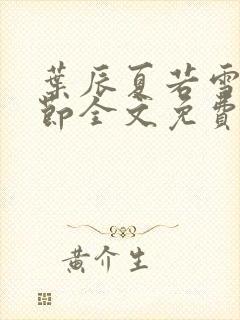 葉辰夏若雪
節全文免費
黄介生